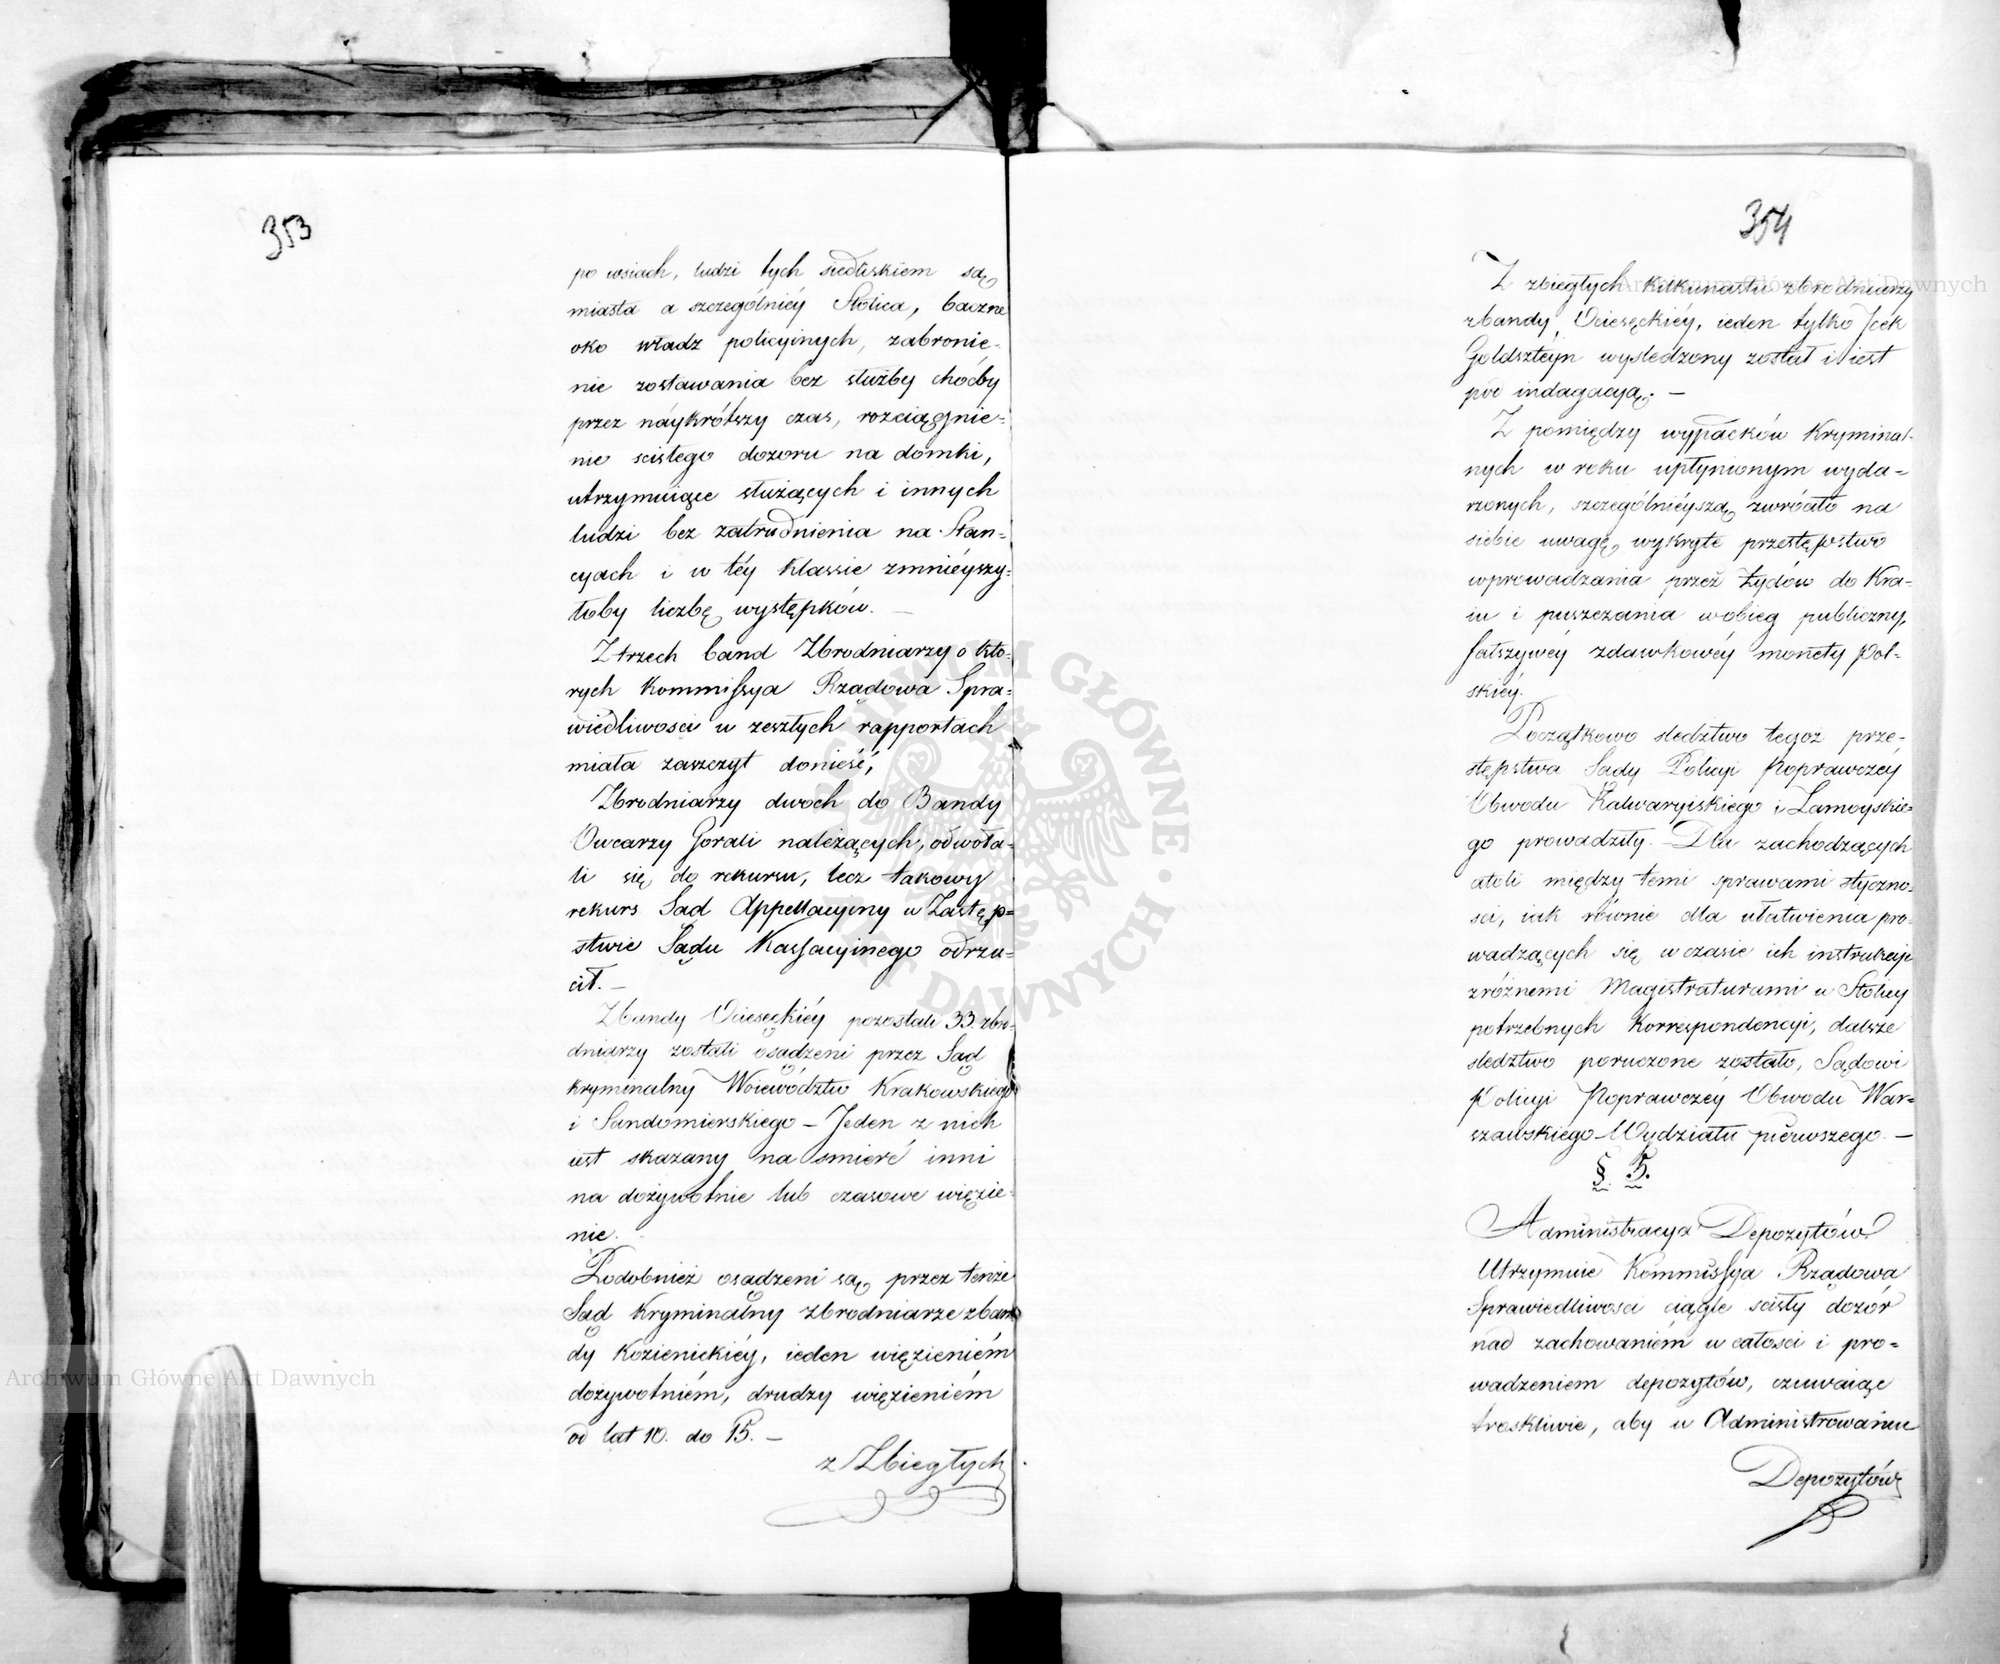 353
po wsiach, ludzi tych siedliskiem są
miasta a szczególniéy Stolica, baczne
oko władz policyinych, zabronie-
nie zostawania bez służby choćby
przez náykrótszy czas, rozciągnie-
nie scisłego dozoru na domki,
utrzymuiące służących i innych
ludzi bez zatrudnienia na Stan-
cyach i w téy klassie zmnieyszy-
łoby liczbę występków. —
Z trzech band Zbrodniarzy o któ-
rych Kommissya Rządowa Spra-
wiedliwosci w zeszłych rapportach
miała zaszczyt donieść,
Zbrodniarzy dwoch do Bandy
Owcarzy Gorali należących, odwoła-
li się do rekursu, lecz takowy
rekurs Sąd Appellacyiny w Zastęp-
stwie Sądu Kassacyinego odrzu-
cił. —
Z bandy Ociesęckiéy pozostali 33. zbro-
dniarzy zostali osądzeni przez Sąd
kryminalny Woiewództw Krakowskiego
i Sandomierskiego – Jeden z nich
iest skazany na smierć inni
na dożywotnie lub czasowe więzie-
nie.
Podobnież osądzeni są przez tenże
Sąd Kryminalny zbrodniarze z ban-
dy Kozienickiéy, ieden więzieniém
dożywotniém, drudzy więzieniém
od lat 10. do 15. —
z Zbiegłych
354
Z zbiegłych kilkunastu zbrodniarzy
z bandy Ociesęckiéy, ieden tylko Icek
Goldsztéyn wysledzony został i iest
pod indagacyą. —
Z pomiędzy wypadków Kryminal-
nych w roku upłynionym wyda-
rzonych, szczególniéyszą zwróciło na
siebie uwagę, wykryte przestępstwo
wprowadzania przez Żydów do Kra-
iu i puszczania w obieg publiczny,
fałszywéy zdawkowéy monéty Pol-
skiéy.
Początkowo sledztwo tegoż prze-
stępstwa Sądy Policyi Poprawczéy
Obwodu Kalwaryiskiego i Zamoyskie-
go prowadziły. Dla zachodzących
atoli między temi sprawami styczno-
sci, iak równie dla ułatwienia pro-
wadzących się w czasie ich instrukcyi
z różnemi Magistraturami w Stolicy
potrzebnych Korrespondencyi, dalsze
sledztwo poruczone zostało, Sądowi
Policyi Poprawczéy Obwodu War-
szawskiego Wydziału pierwszego. —
§. 5.
Administracya Depozytów
Utrzymuie Kommissya Rządowa
Sprawiedliwosci ciągle scisły dozór
nad zachowaniém w całosci i pro-
wadzeniem depozytów, czuwaiąc
troskliwie, aby w Administrowaniu
Depozytów
Archiwum Główne Akt Dawnych
Archiwum Główne Akt Dawnych
ARCHIWUM GŁÓWNE AKT DAWNYCH